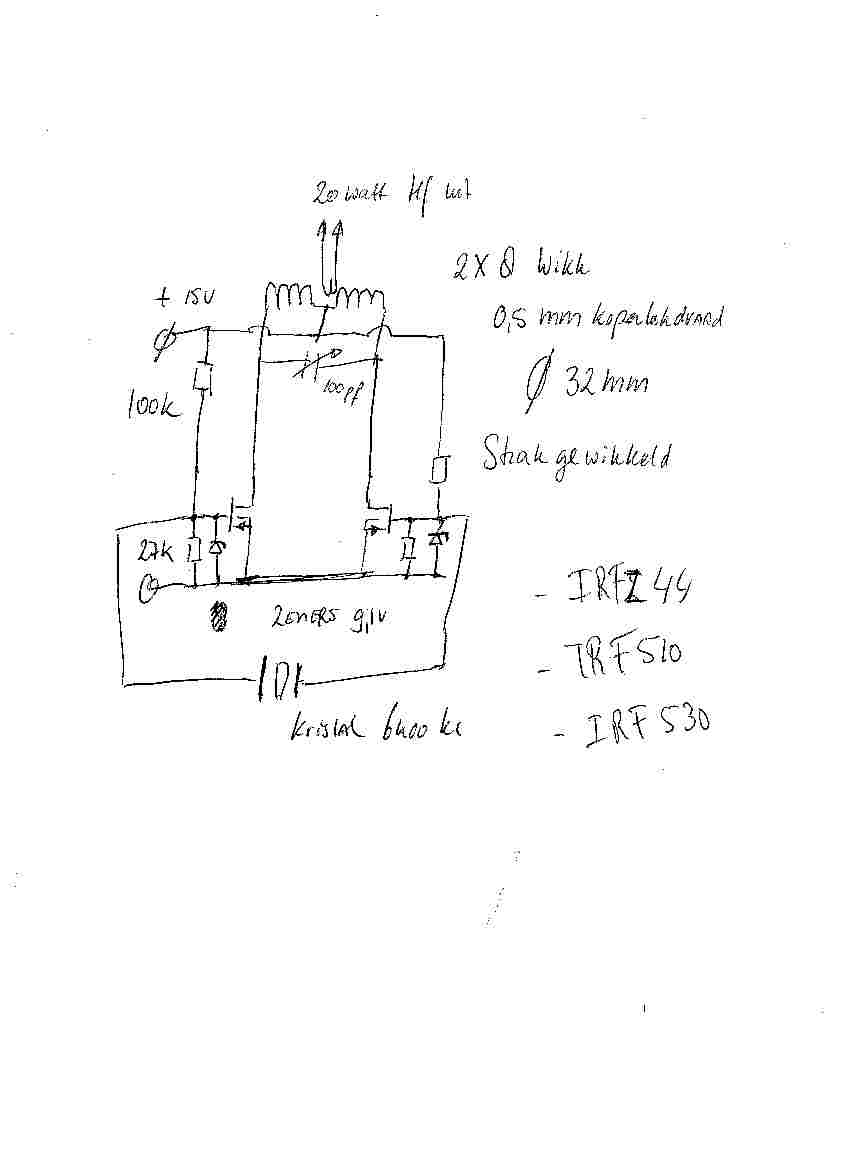 20 watt Hf uit
2 X 8 Wikk
+ 15V
0,5 mm koperlakdraad
Ø 32 mm
100pf
100k
Strak gewikkeld
27K
- IRFZ 44
ZENERS 9,1V
- IRF510
kristal 6400 kc
- IRF 530